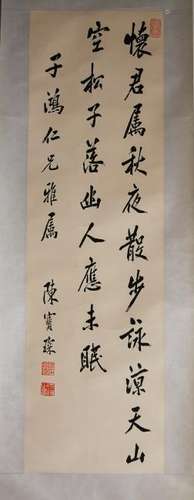 懷君屬秋夜散步詠涼天山
空松子落幽人應未眠
子鴻仁兄雅屬
陳寶琛